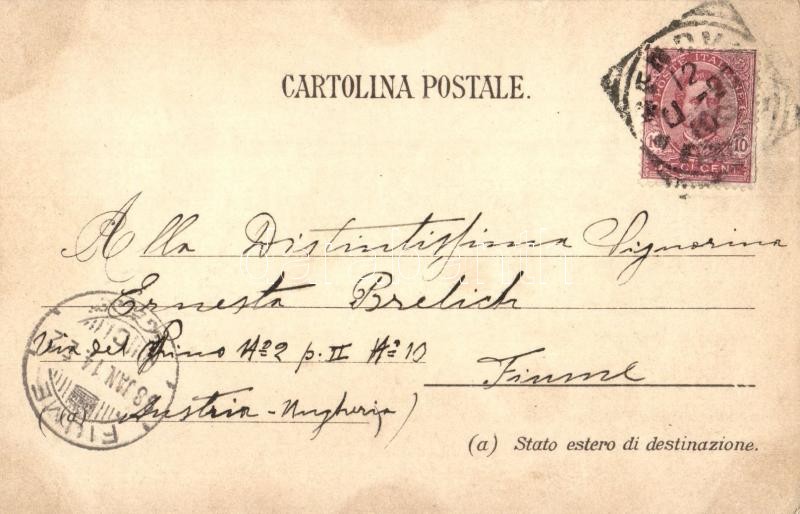 CARTOLINA POSTALE.
POSTE ITALIANE
10
Alla Distintissima Signorina
Ernesta Brelich
Via del Pino Nº 2 p. II Nº 10
Fiume
(a) Austria-Ungheria)
(a) Stato estero di destinazione.
FIUME
98 JAN 14